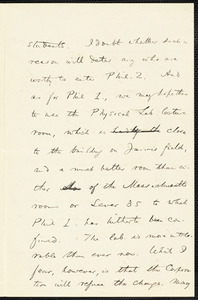 students. I doubt whether such a
reason will deter any who are
worthy to enter Phil 2. And
as for Phil 1, we may hope then
to use the Physical Lab lecture
room, which is close
to the building on Jarvis field,
and a much better room than ei-
ther of the Massachusetts
rooms or Sever 35 to which
Phil 1. has hitherto been con-
fined. The lab. is more attrac-
tive than ever now. What I
fear, however, is that the Corpora-
tion will refuse the change. Many